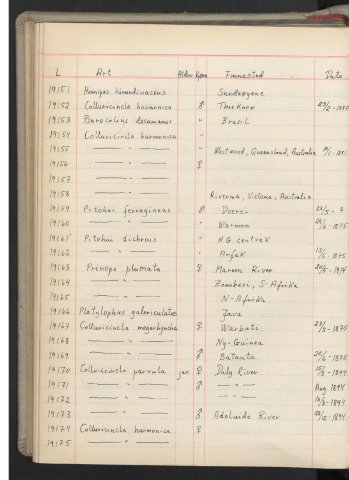 L Art Alder Kjønn Finnested Date
19151 Hemipus hirundinaceus Sundaøyene
19152 Colluricincla harmonica ♂ The Knox
19153 Psarocolius decumanus " Brasil
19154 Colluricincla harmonica "
19155 — " — " Westwood, Queensland, Australia
19156 — " — ♀
19157 — " —
19158 — " — Riverina, Victoria, Australia
19159 Pitohui ferrugineus ♂ Doreri
19160 — " — " Warmon
19161 Pitohui dichrous " N.G. centralt
19162 — " — " Arfak
19163 Prionops plumata ♀ Mareon River
19164 — " — Zambesi, S-Afrika
19165 — " — N-Afrika
19166 Platylophus galericulatus Java
19167 Colluricincla megarhyncha ♀ Warbusi
19168 — " — Ny-Guinea
19169 — " — ♂ Batanta
19170 Colluricincla parvula juv. ♀ Daly River
19171 — " — ♂ — " — Aug. 1894
19172 — " — — " —
19173 — " — ♂ Adelaide River
19174 Colluricincla harmonica ♀
19175 — " —